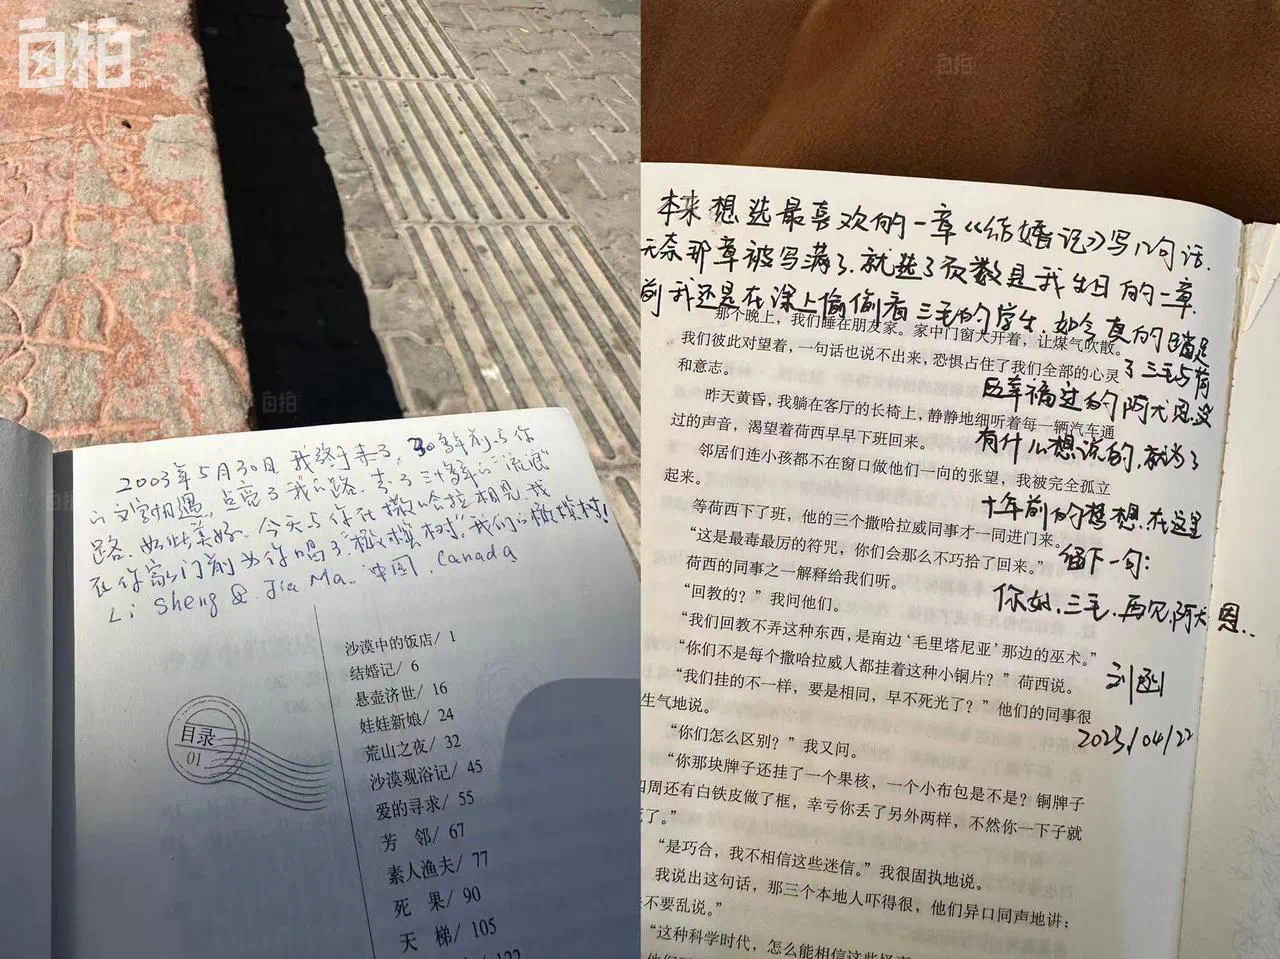 自拍
2003年5月30日 我终于来了，30年前与你
的文字相遇，点亮了我的路。走了三十年的“流浪”
路，如此美好。今天与你在撒哈拉相见，我
在你家门前为你唱了“橄榄树”，我们的橄榄树！
Li Sheng & Jia Ma 中国. Canada
目录
01
沙漠中的饭店/ 1
结婚记/ 6
悬壶济世/ 16
娃娃新娘/ 24
荒山之夜/ 32
沙漠观浴记/ 45
爱的寻求/ 55
芳 邻/ 67
素人渔夫/ 77
死 果/ 90
天 梯/ 105
本来想选最喜欢的一章《结婚记》写几句话.
无奈那章被写满了.就选了页数是我生日的一章.
前我还是在课上偷偷看三毛的学生.如今真的踏足
了三毛与荷
西幸福过的阿尤恩.没
有什么想说的.就为了
十年前的梦想.在这里
留下一句：
你好.三毛.再见.阿尤恩..
2023/04/22
那个晚上，我们睡在朋友家。家中门窗大开着，让煤气吹散。
我们彼此对望着，一句话也说不出来，恐惧占住了我们全部的心灵
和意志。
昨天黄昏，我躺在客厅的长椅上，静静地细听着每一辆汽车通
过的声音，渴望着荷西早早下班回来。
邻居们连小孩都不在窗口做他们一向的张望，我被完全孤立
起来。
等荷西下了班，他的三个撒哈拉威同事才一同进门来。
“这是最毒最厉的符咒，你们会那么不巧拾了回来。”
荷西的同事之一解释给我们听。
“回教的？”我问他们。
“我们回教不弄这种东西，是南边‘毛里塔尼亚’那边的巫术。”
“你们不是每个撒哈拉威人都挂着这种小铜片？”荷西说。
“我们挂的不一样，要是相同，早不死光了？”他们的同事很
生气地说。
“你们怎么区别？”我又问。
“你那块牌子还挂了一个果核，一个小布包是不是？铜牌子
四周还有白铁皮做了框，幸亏你丢了另外两样，不然你一下子就
死了。”
“是巧合，我不相信这些迷信。”我很固执地说。
我说出这句话，那三个本地人吓得很，他们异口同声地讲：
不要乱说。”
“这种科学时代，怎么能相信这些怪